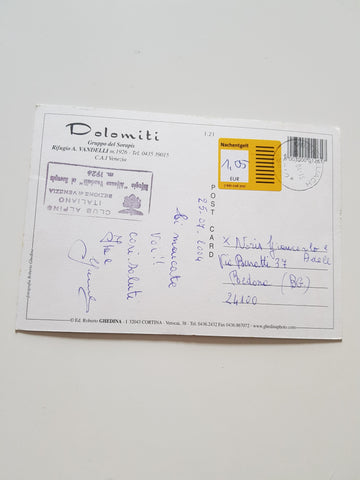 Dolomiti
Gruppo del Sorapis
Rifugio A. VANDELLI m. 1926 - Tel. 0435 39015
C.A.I Venezia
1.21
Nachentgelt
1,05
EUR
CLUB ALPINO
ITALIANO
SEZIONE di VENEZIA
Rifugio "Alfonso Vandelli" al Sorapis
m. 1926
POST CARD
25.07.2004
Ci mancate
Voi!!
cari saluti
x Noris Giancarlo &
Adele
Via Baratti 37
Redona (BG)
24100
© Ed. Roberto GHEDINA - I 32043 CORTINA - Verocai, 38 - Tel. 0436.2432 Fax 0436.867072 - www.ghedinaphoto.com